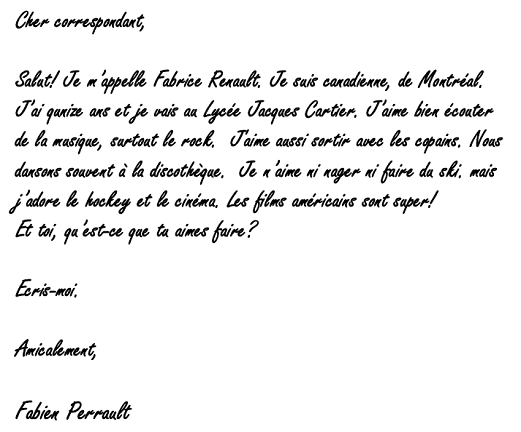 Cher correspondant,
Salut! Je m'appelle Fabrice Renault. Je suis canadienne, de Montréal.
J'ai qunize ans et je vais au Lycée Jacques Cartier. J'aime bien écouter
de la musique, surtout le rock. J'aime aussi sortir avec les copains. Nous
dansons souvent à la discothèque. Je n'aime ni nager ni faire du ski. mais
j'adore le hockey et le cinéma. Les films américains sont super!
Et toi, qu'est-ce que tu aimes faire?
Ecris-moi.
Amicalement,
Fabien Perrault